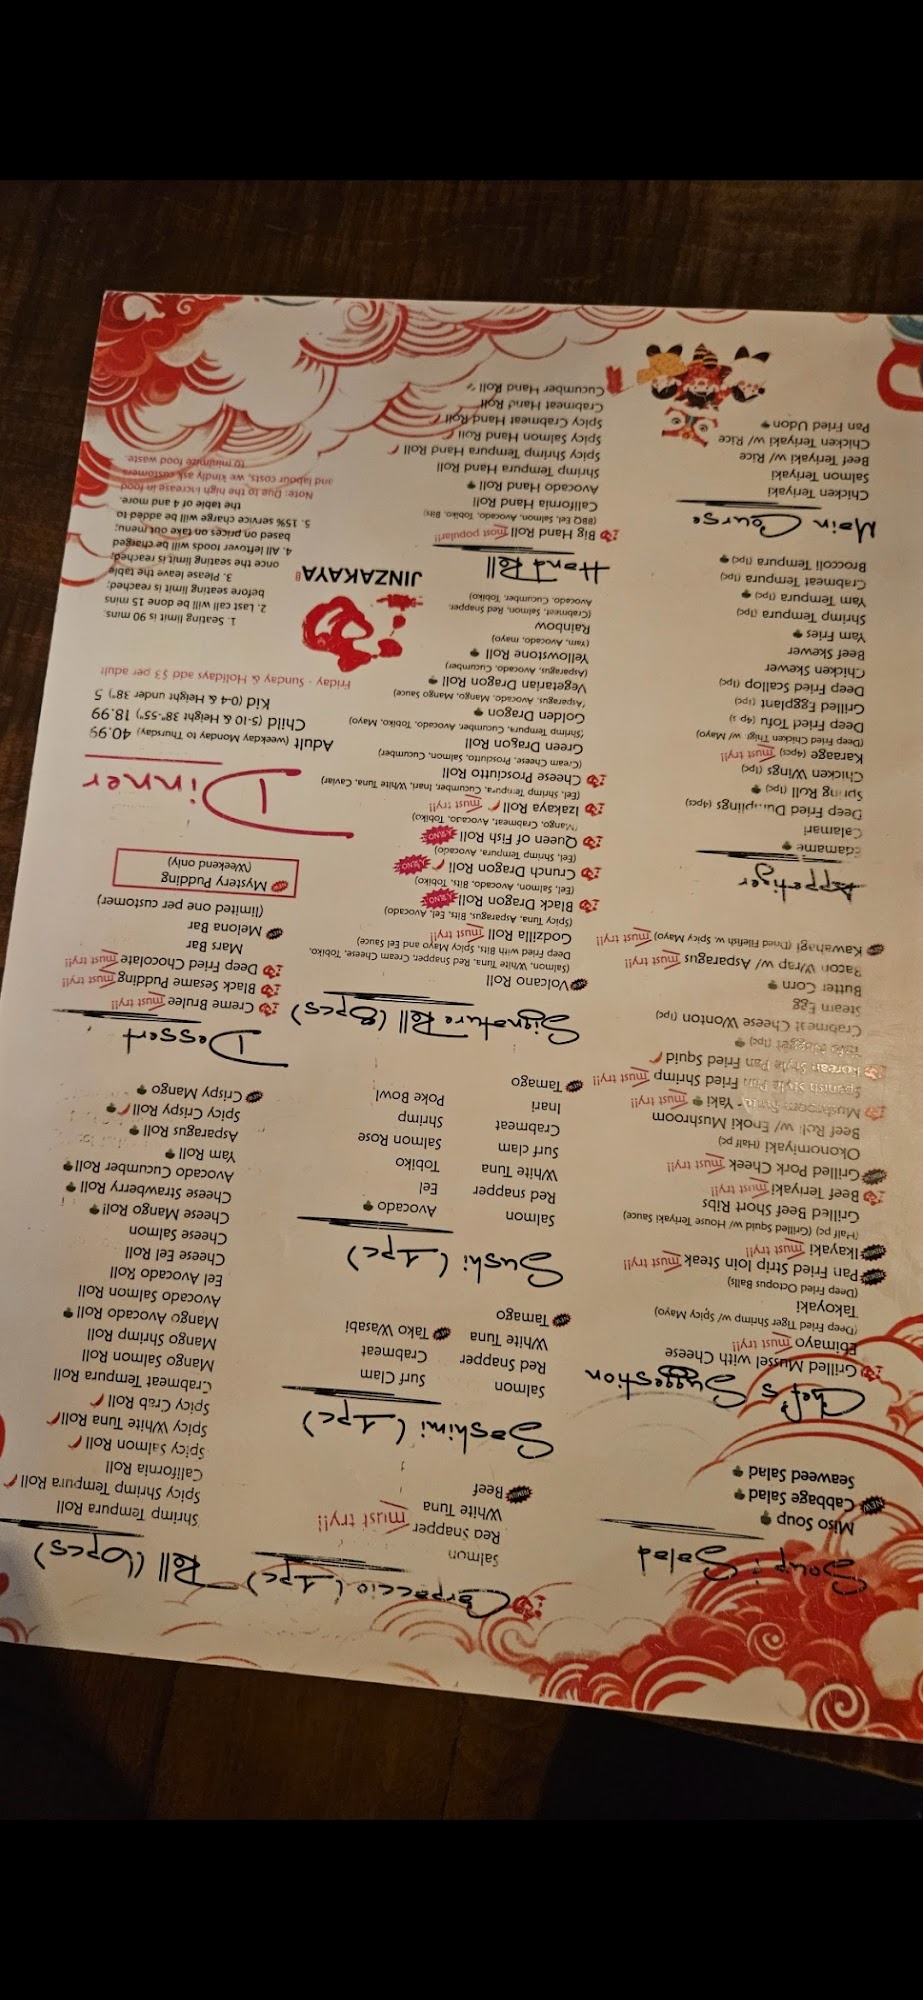 Soup & Salad
Miso Soup
NEW Cabbage Salad
Seaweed Salad
Chef's Suggestion
Grilled Mussel with Cheese
Ebimayo must try!!
(Deep Fried Tiger Shrimp w/ Spicy Mayo)
Takoyaki
(Deep Fried Octopus Balls)
Pan Fried Strip loin Steak must try!!
Ikayaki must try!!
(Half pc) (Grilled Squid w/ House Teriyaki Sauce)
Grilled Beef Short Ribs
Beef Teriyaki must try!!
Grilled Pork Cheek must try!!
Okonomiyaki (Half pc)
Beef Roll w/ Enoki Mushroom
Mushroom Yaki must try!!
Spanish Style Pan Fried Shrimp must try!!
Korean Style Pan Fried Squid
Nugget (1pc)
Crabmeat Cheese Wonton (1pc)
Steam Egg
Butter Corn
Bacon Wrap w/ Asparagus must try!!
Kawahagi (Dried Filefish w. Spicy Mayo) must try!!
Appetizer
Edamame
Calamari
Deep Fried Dumplings (4pcs)
Spring Roll (1pc)
Chicken Wings (1pc)
Karaage (4pcs) must try!!
(Deep Fried Chicken Thigh w/ Mayo)
Deep Fried Tofu
Grilled Eggplant (1pc)
Deep Fried Scallop (1pc)
Chicken Skewer
Beef Skewer
Yam Fries
Shrimp Tempura (1pc)
Yam Tempura (1pc)
Crabmeat Tempura (1pc)
Broccoli Tempura (1pc)
Main Course
Chicken Teriyaki
Salmon Teriyaki
Beef Teriyaki w/ Rice
Chicken Teriyaki w/ Rice
Pan Fried Udon
Carpaccio (1pc)
Salmon
Red Snapper
White Tuna
must try!!
Beef
Sashimi (1pc)
Salmon
Red Snapper
White Tuna
Tamago
Surf Clam
Crabmeat
Tako Wasabi
Sushi (1pc)
Salmon
Red snapper
White Tuna
Surf clam
Crabmeat
Inari
Tamago
Avocado
Eel
Tobiko
Salmon Rose
Shrimp
Poke Bowl
Signature Roll (8pcs)
Volcano Roll
(Salmon, White Tuna, Red Snapper, Cream Cheese, Tobiko,
Deep Fried with Bits, Spicy Mayo and Eel Sauce)
Godzilla Roll must try!!
(Spicy Tuna, Asparagus, Bits, Eel, Avocado)
Black Dragon Roll
(Eel, Salmon, Avocado, Bits, Tobiko)
Crunch Dragon Roll
(Eel, Shrimp Tempura, Avocado)
Queen of Fish Roll
(Mango, Crabmeat, Avocado, Tobiko)
Izakaya Roll must try!!
(Eel, Shrimp Tempura, Cucumber, Inari, White Tuna, Caviar)
Cheese Prosciutto Roll
(Cream Cheese, Prosciutto, Salmon, Cucumber)
Green Dragon Roll
(Shrimp Tempura, Cucumber, Avocado, Tobiko, Mayo)
Golden Dragon
(Asparagus, Avocado, Mango, Mango Sauce)
Vegetarian Dragon Roll
(Asparagus, Avocado, Cucumber)
Yellowstone Roll
(Yam, Avocado, mayo)
Rainbow
(Crabmeat, Salmon, Red Snapper,
Avocado, Cucumber, Tobiko)
Hand Roll
Big Hand Roll most popular!!
(BBQ Eel, Salmon, Avocado, Tobiko, Bits)
California Hand Roll
Avocado Hand Roll
Shrimp Tempura Hand Roll
Spicy Shrimp Tempura Hand Roll
Spicy Salmon Hand Roll
Spicy Crabmeat Hand Roll
Crabmeat Hand Roll
Cucumber Hand Roll
Roll (6pcs)
Shrimp Tempura Roll
Spicy Shrimp Tempura Roll
California Roll
Spicy Salmon Roll
Spicy White Tuna Roll
Spicy Crab Roll
Crabmeat Tempura Roll
Mango Salmon Roll
Mango Shrimp Roll
Mango Avocado Roll
Avocado Salmon Roll
Eel Avocado Roll
Cheese Eel Roll
Cheese Salmon
Cheese Mango Roll
Cheese Strawberry Roll
Avocado Cucumber Roll
Yam Roll
Asparagus Roll
Spicy Crispy Roll
Crispy Mango
Dessert
Creme Brulee must try!!
Black Sesame Pudding must try!!
Deep Fried Chocolate must try!!
Mars Bar
Melona Bar
(limited one per customer)
Mystery Pudding
(Weekend only)
Dinner
Adult (weekday Monday to Thursday) 40.99
Child (5-10 & Height 38"-55") 18.99
Kid (0-4 & Height under 38") 5
Friday - Sunday & Holidays add $3 per adult
JINZAKAYA
1. Seating limit is 90 mins.
2. Last call will be done 15 mins
before seating limit is reached;
3. Please leave the table
once the seating limit is reached;
4. All leftover foods will be charged
based on prices on take out menu;
5. 15% service charge will be added to
the table of 4 and more.
Note: Due to the high increase in food
and labour costs, we kindly ask customers
to minimize food waste.